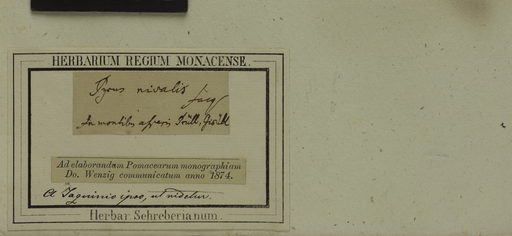 HERBARIUM REGIUM MONACENSE.
Pyrus nivalis
Jacq
In montibus
Ad elaborandum Pomacearum monographiam
Do. Wenzig communicatum anno 1874.
A Jaquinio ipso, ut videtur.
Herbar Schreberianum.